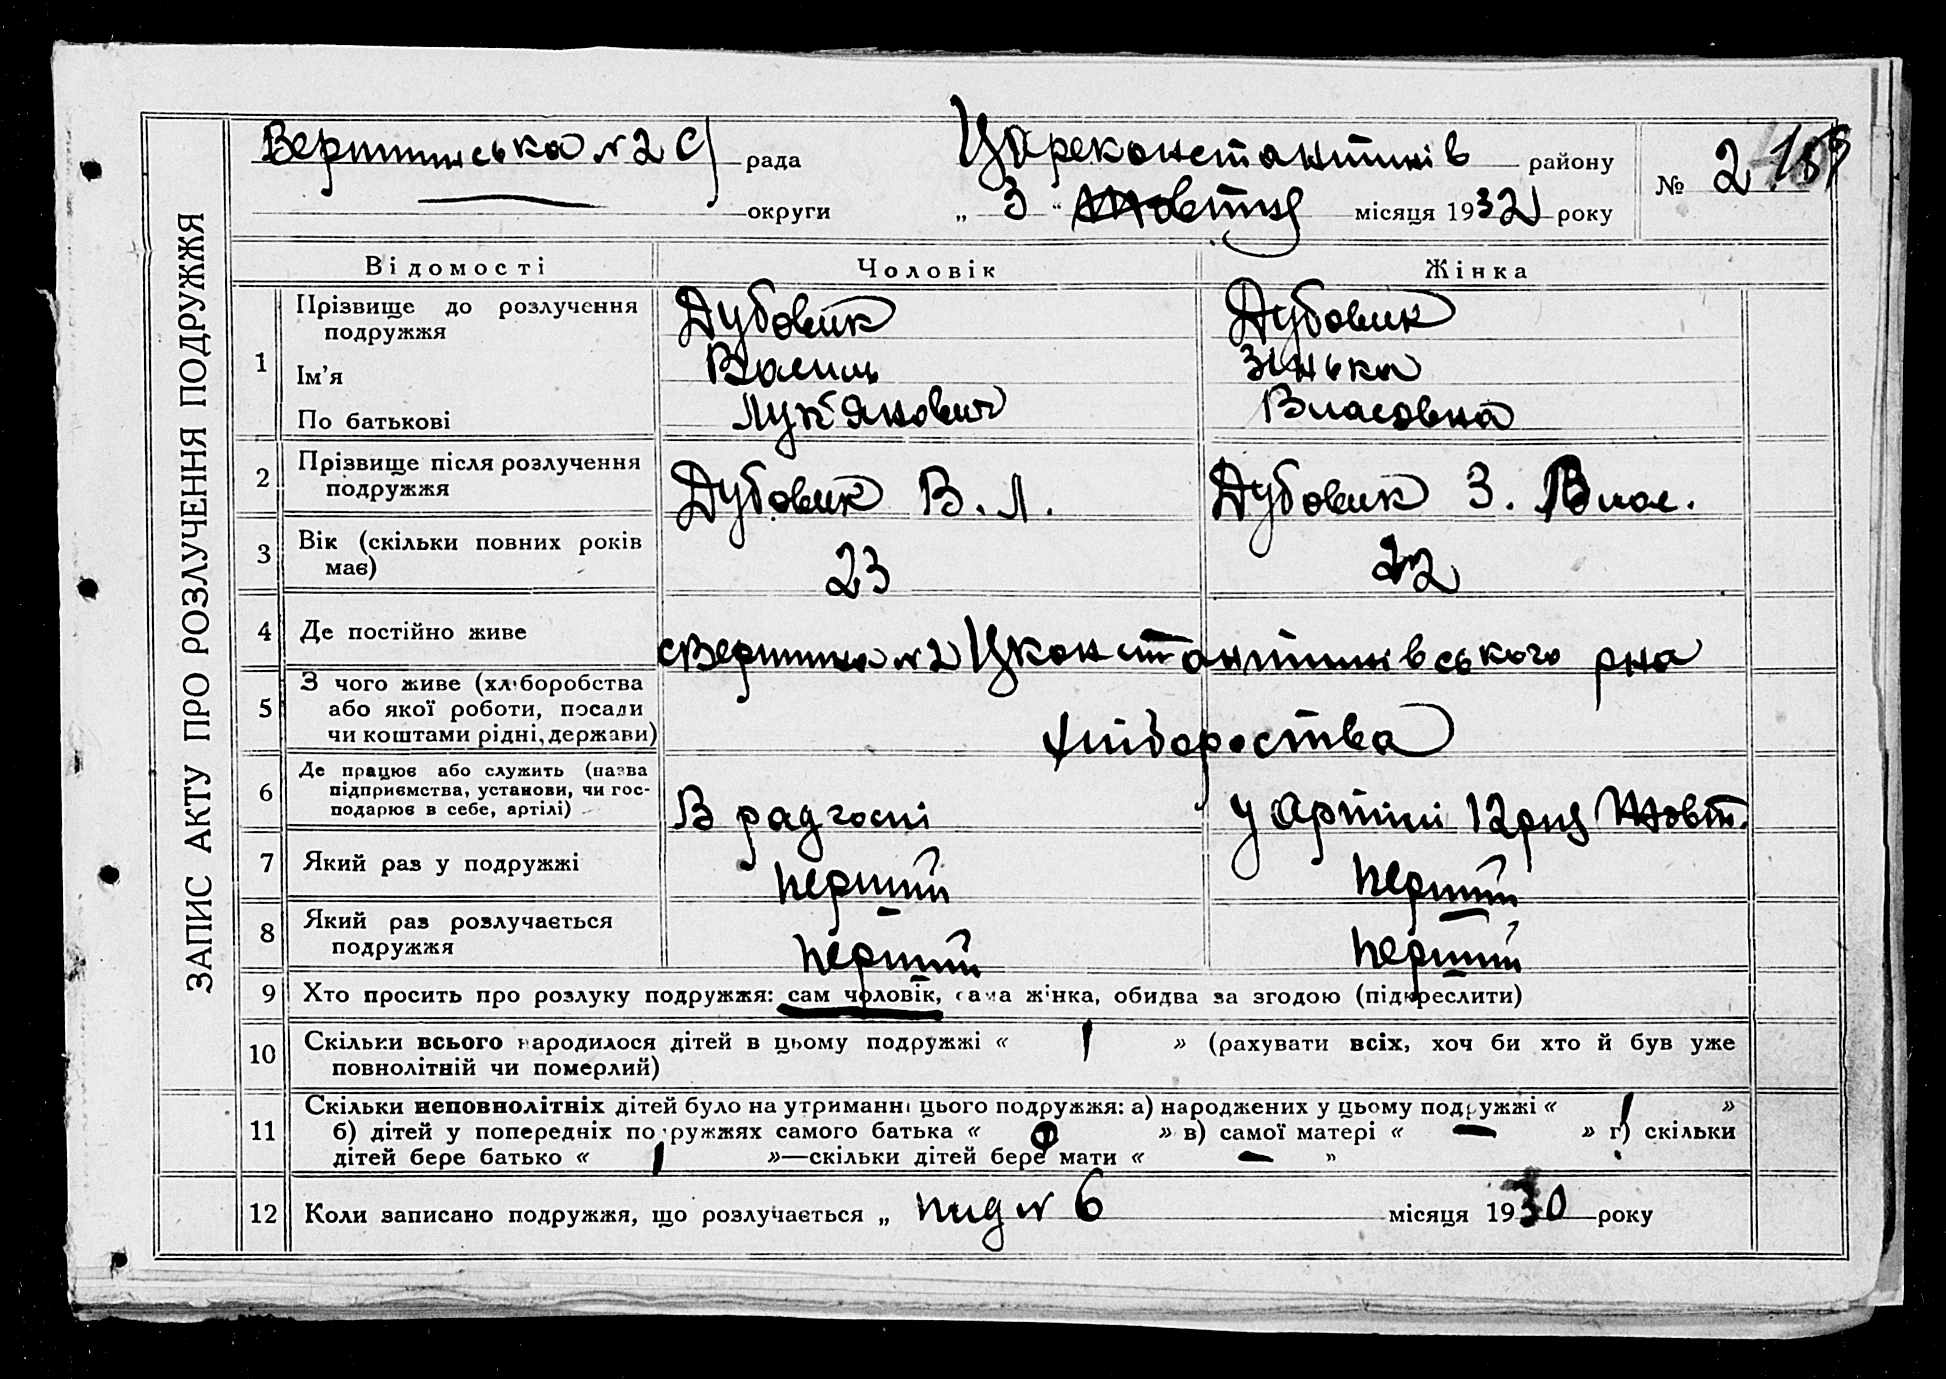 ЗАПИС АКТУ ПРО РОЗЛУЧЕННЯ ПОДРУЖЖЯ
Вершинська №2 С/ рада Цареконстантинів району № 2
округи „ 3 “ Жовтня місяця 1932 року
Відомості Чоловік Жінка
1 Прізвище до розлучення подружжя Дубовик Дубовик
Ім’я Василь Зінька
По батькові Лук'янович Власовна
2 Прізвище після розлучення подружжя Дубовик В. Л. Дубовик З. Влас.
3 Вік (скільки повних років має) 23 22
4 Де постійно живе с Вершина №2 Цконстантинівського рна
5 З чого живе (хліборобства або якої роботи, посади чи коштами рідні, держави)
6 Де працює або служить (назва підприємства, установи, чи господарює в себе, артілі) В радгоспі у Артілі 12 рич Жовт.
7 Який раз у подружжі перший перший
8 Який раз розлучається подружжя перший перший
9 Хто просить про розлуку подружжя: сам чоловік, сама жінка, обидва за згодою (підкреслити)
10 Скільки всього народилося дітей в цьому подружжі « 1 » (рахувати всіх, хоч би хто й був уже
повнолітній чи померлий)
11 Скільки неповнолітніх дітей було на утриманні цього подружжя: а) народжених у цьому подружжі « 1 »
б) дітей у попередніх подружжях самого батька « » в) самої матері « — » г) скільки
дітей бере батько « 1 »—скільки дітей бере мати « — »
12 Коли записано подружжя, що розлучається „ пид № 6 місяця 1930 року